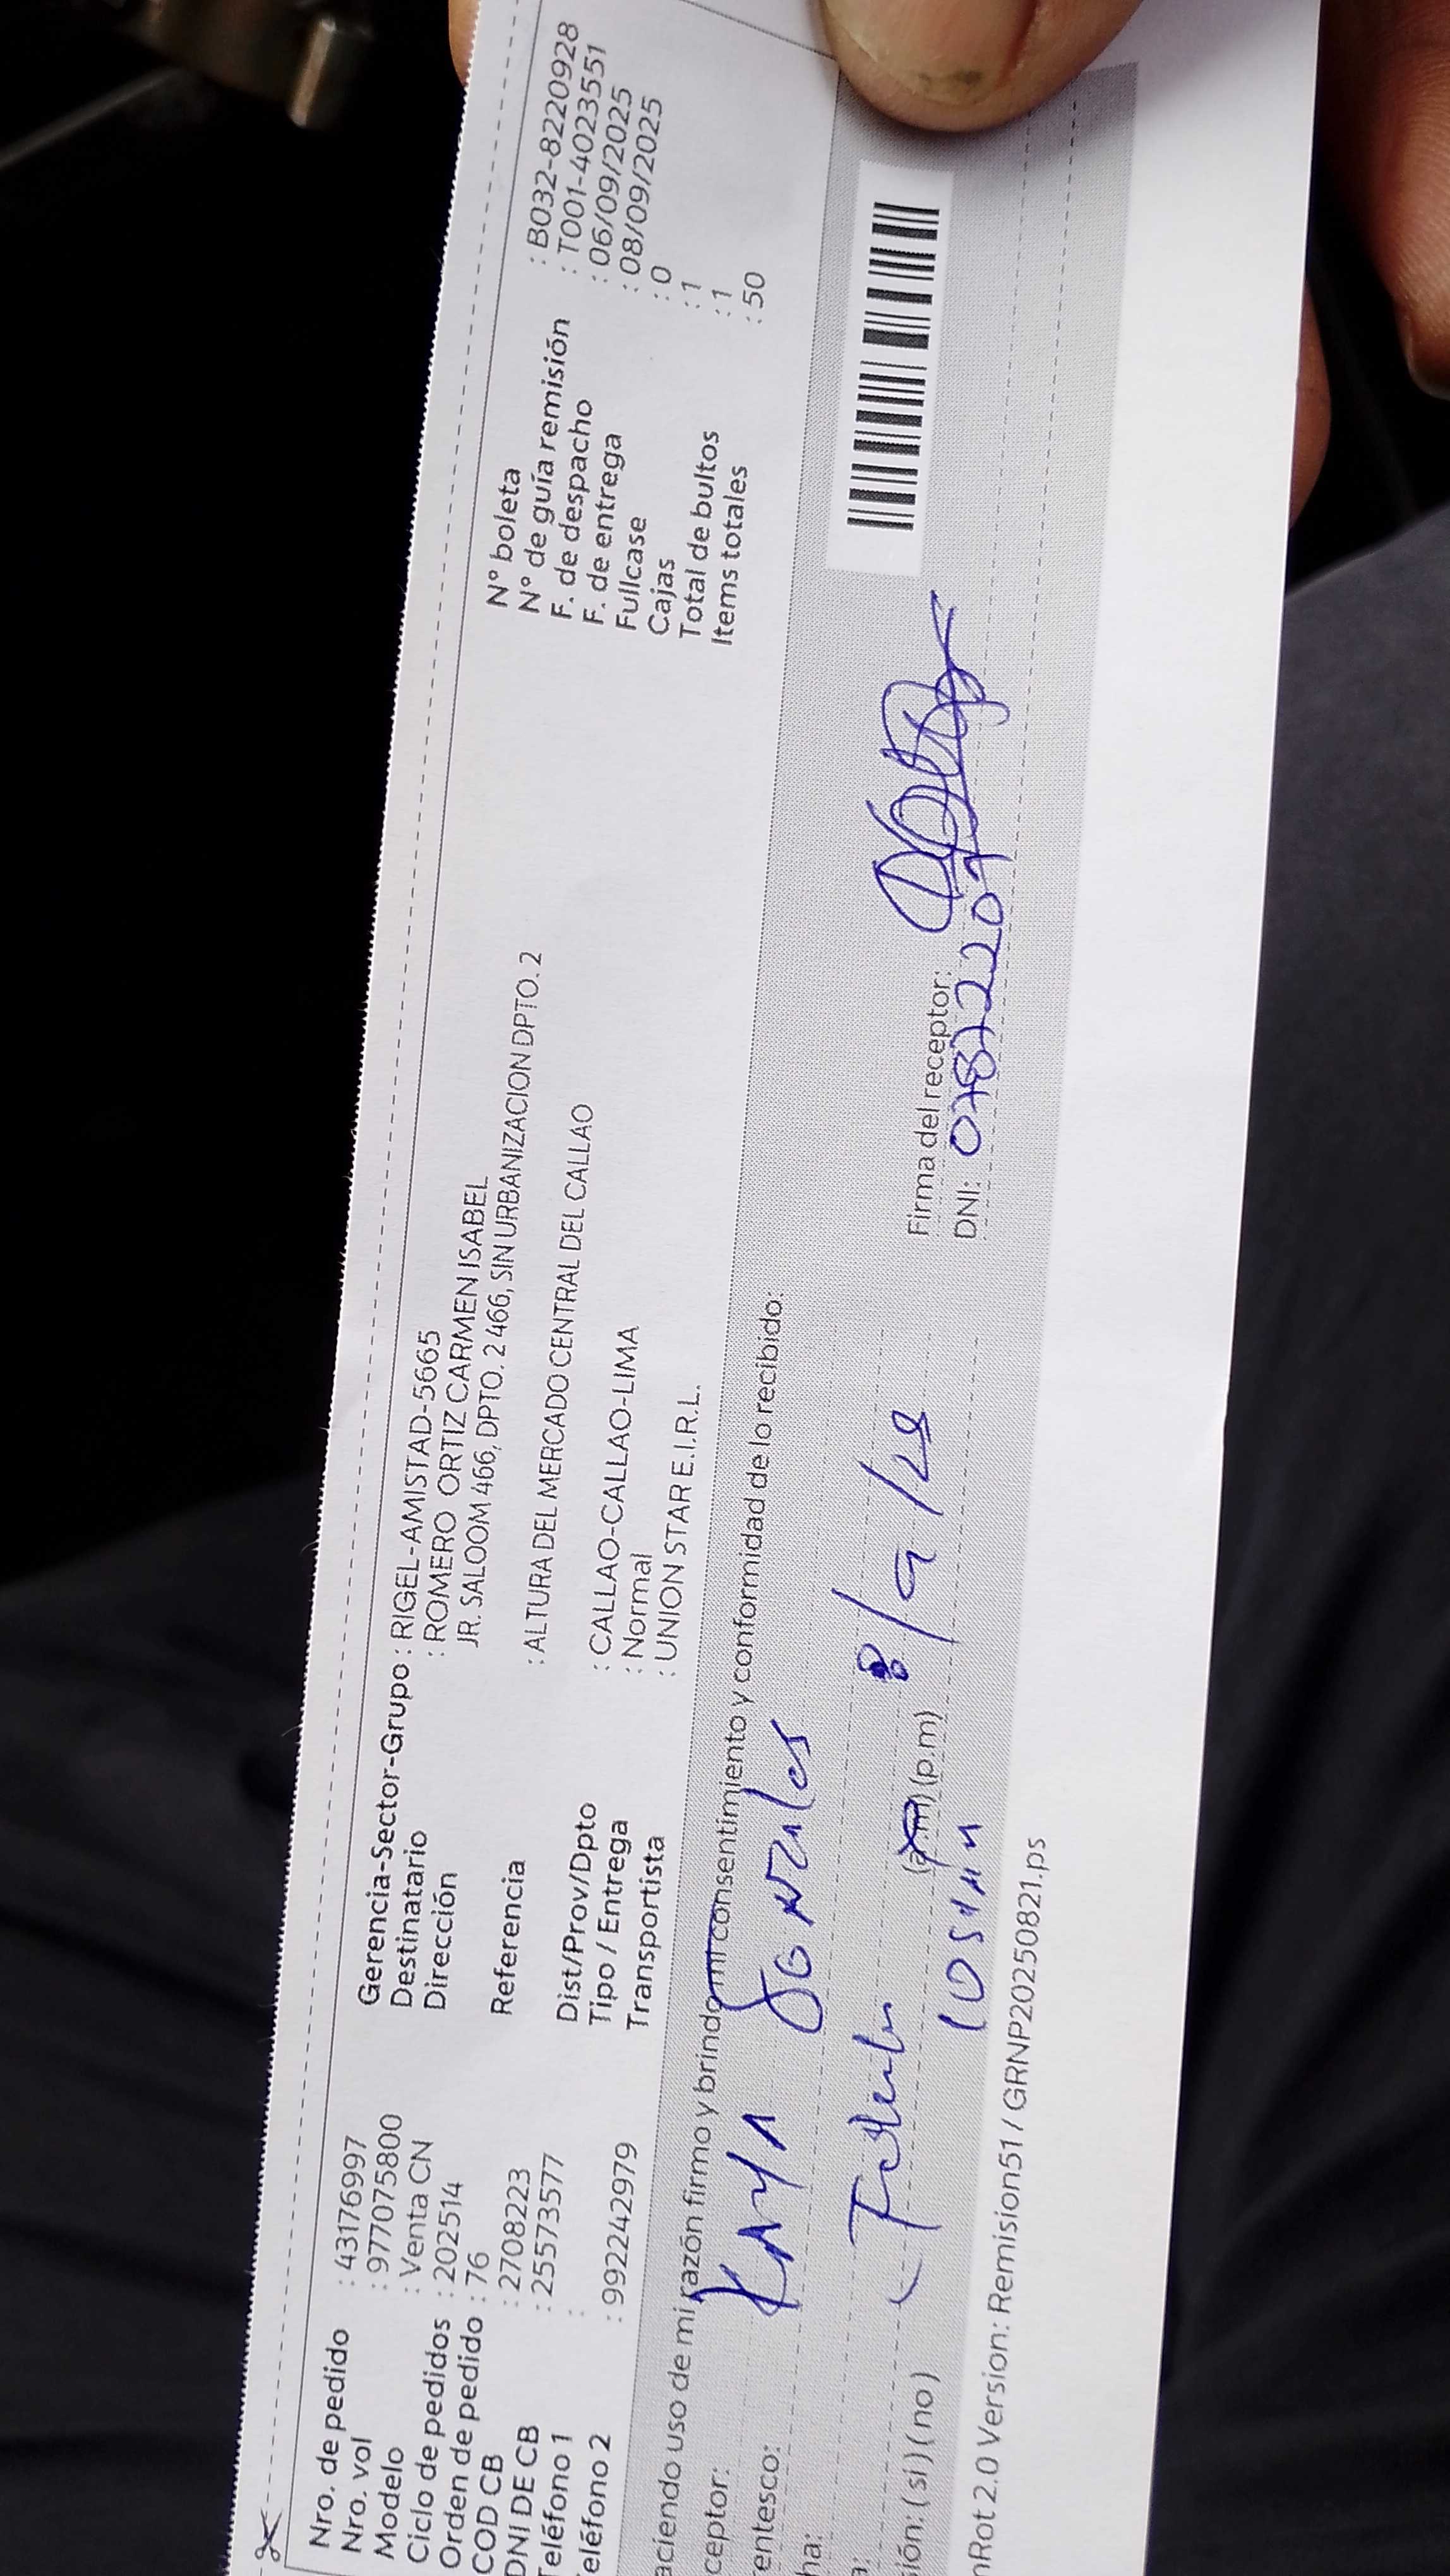 Nro. de pedido : 43176997
Nro. vol : 977075800
Modelo : Venta CN
Ciclo de pedidos : 202514
Orden de pedido : 76
COD CB : 2708223
DNI DE CB : 25573577
Teléfono 1 :
eléfono 2 : 992242979
Gerencia-Sector-Grupo : RIGEL-AMISTAD-5665
Destinatario : ROMERO ORTIZ CARMEN ISABEL
Dirección JR. SALOOM 466, DPTO. 2 466, SIN URBANIZACION DPTO. 2
Referencia : ALTURA DEL MERCADO CENTRAL DEL CALLAO
Dist/Prov/Dpto : CALLAO-CALLAO-LIMA
Tipo / Entrega : Normal
Transportista : UNION STAR E.I.R.L.
N° boleta : B032-8220928
N° de guía remisión : T001-4023551
F. de despacho : 06/09/2025
F. de entrega : 08/09/2025
Fullcase : 0
Cajas : 1
Total de bultos : 1
Items totales : 50
aciendo uso de mi razón firmo y brindo mi consentimiento y conformidad de lo recibido:
ceptor:
entesco:
ha: 8/9/25
a: (a.m) (p.m)
sión: (si) (no)
Firma del receptor:
DNI:
nRot 2.0 Version: Remision51 / GRNP20250821.ps